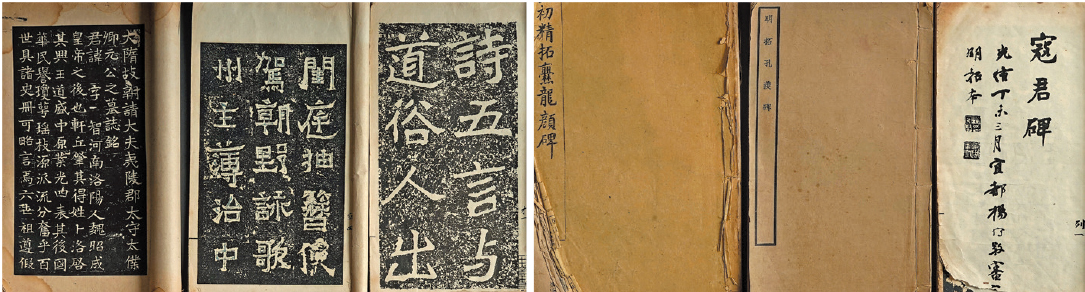 大隋故朝請大夫夷陵郡太守太僕
卿元公之墓誌銘
君諱 字一智河南洛陽人魏昭成
皇帝之後也軒丘肇其得姓卜洛啓
其興王道盛中原業光四表其後國
華民譽瓊萼瑤枝源派流分奮乎百
世具諸史冊可略言焉六世祖遵假
閨庭抽簪俟
駕朝野詠歌
州主薄治中
詩五言与
道俗人出
初精拓爨龍顏碑
明拓孔 碑
寇君碑
光緒丁未三月宜都楊守敬審
明拓本
列一